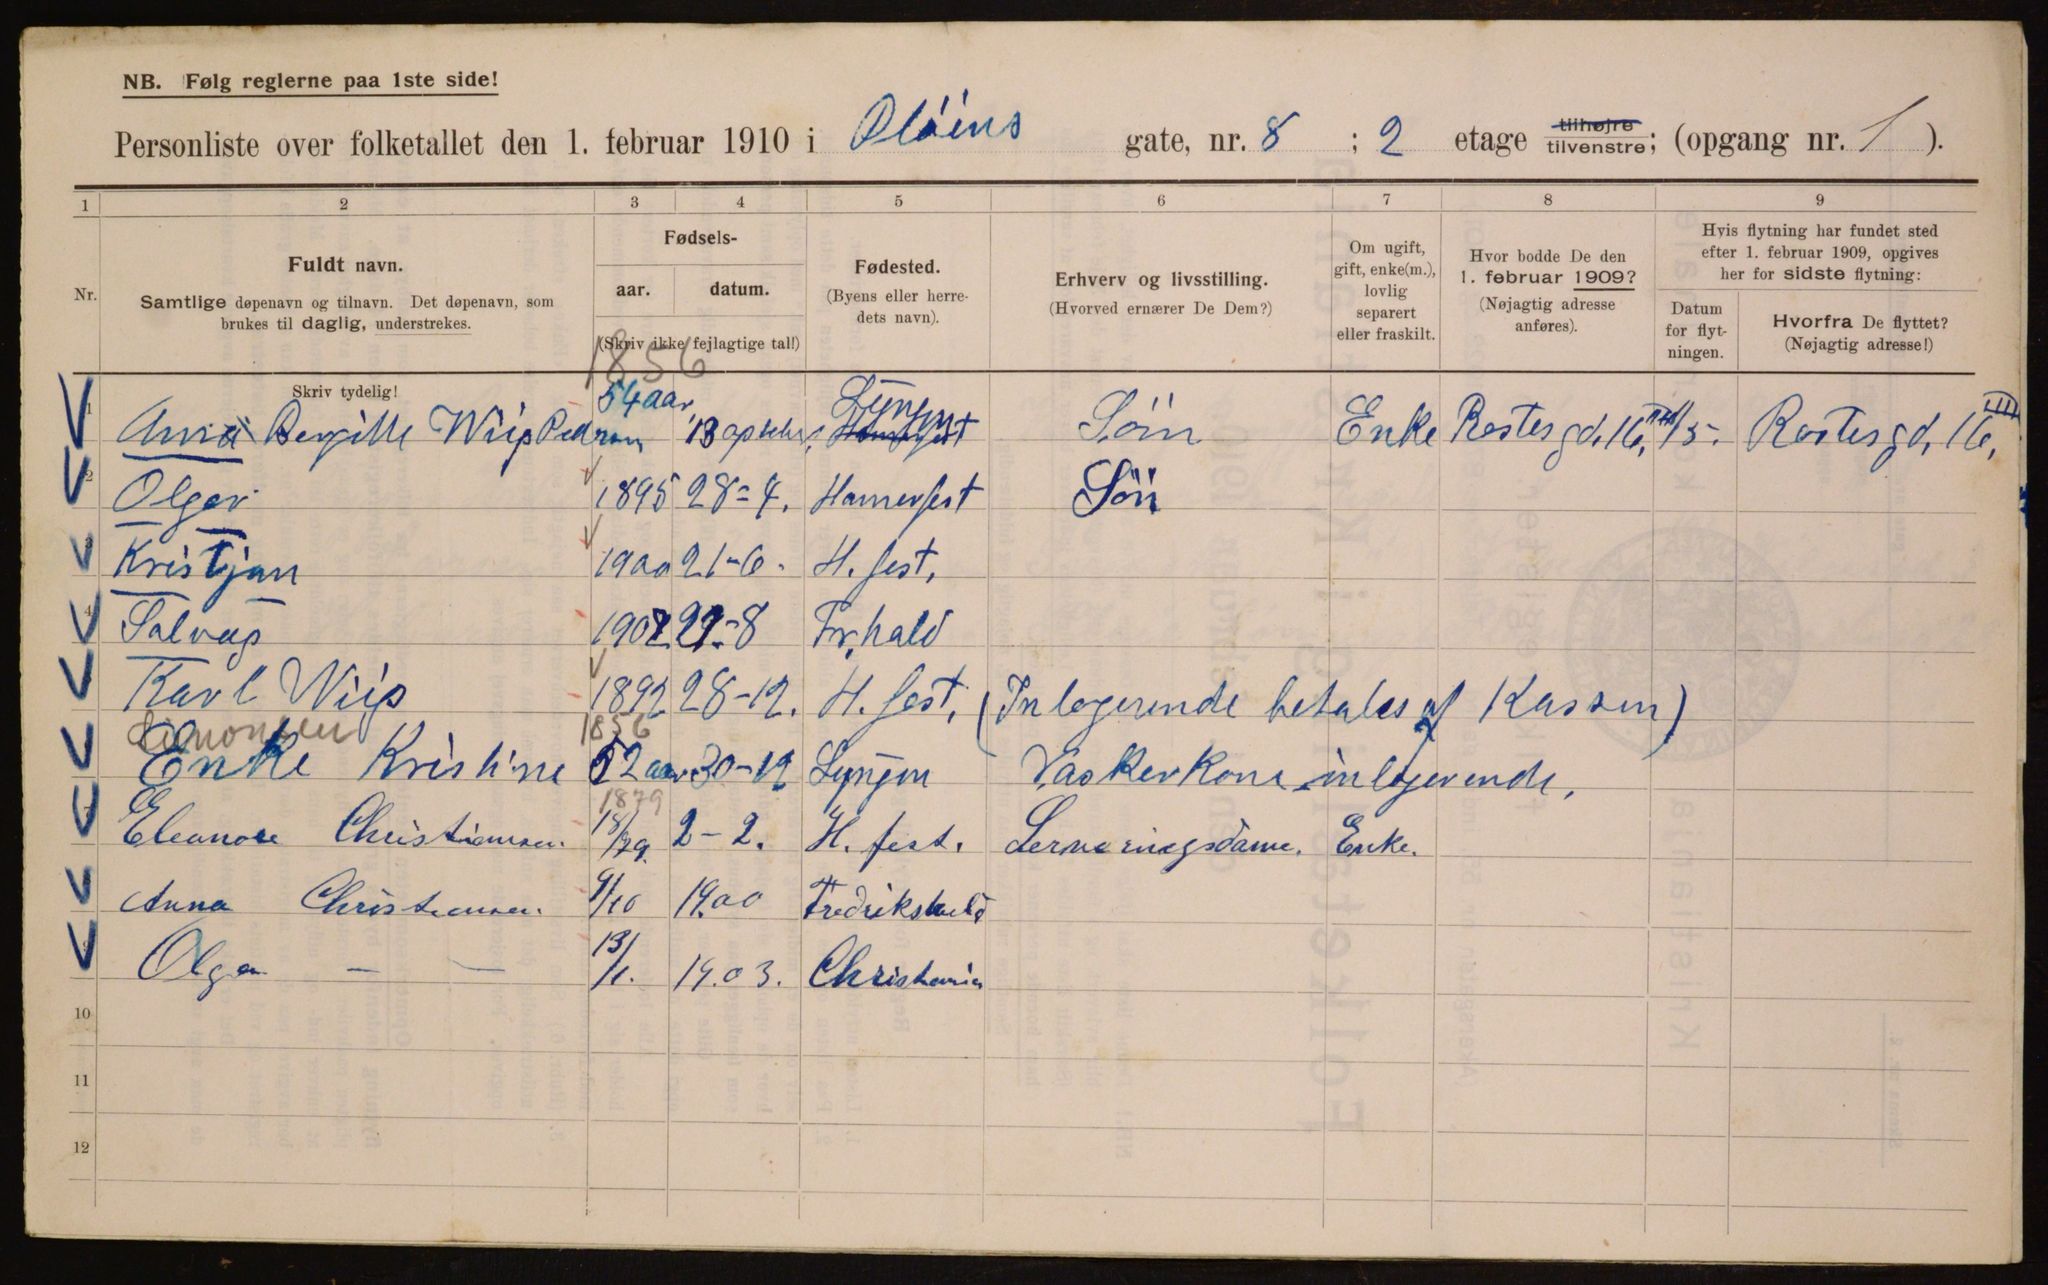 NB. Følg reglerne paa 1ste side!
Personliste over folketallet den 1. februar 1910 i Oléins gate, nr. 8 ; 2 etage tilhøjre tilvenstre; (opgang nr. 1 ).
1 2 3 4 5 6 7 8 9
Nr.
Fuldt navn.
Samtlige døpenavn og tilnavn. Det døpenavn, som
brukes til daglig, understrekes.
Skriv tydelig!
Fødsels-
aar. datum.
(Skriv ikke fejlagtige tal!)
Fødested.
(Byens eller herre-
dets navn).
Erhverv og livsstilling.
(Hvorved ernærer De Dem?)
Om ugift,
gift, enke(m.),
lovlig
separert
eller fraskilt.
Hvor bodde De den
1. februar 1909?
(Nøjagtig adresse
anføres).
Hvis flytning har fundet sted
efter 1. februar 1909, opgives
her for sidste flytning:
Datum
for flyt-
ningen.
Hvorfra De flyttet?
(Nøjagtig adresse!)
1856
54 aar Lyngen
1 Anna Bergitte Wiip 13 Søm Enke Rostesgd. 16, 1/5- Rostesgd. 16, III
2 Olger 1895 28-4. Hamerfest Søn
3 Kristjan 1900 21-6. H. fest.
4 1902 -8 Fr,hald
Karl Wiip 1892 28-12. H. fest. (Inlogerende betales af Kassen)
Simonsen 1856
Enke Kristine 52 aar 30-12 Lyngen Vaskerkone inlogerende,
1879
7 Eleanore Christiansen. 18/79. 2-2. H. fest. Serveringsdame. Enke.
Anna Christiansen. 9/10 19.00 Fredrikshald
9 Olga — — 13/1. 19.03. Christiania
10
11
12